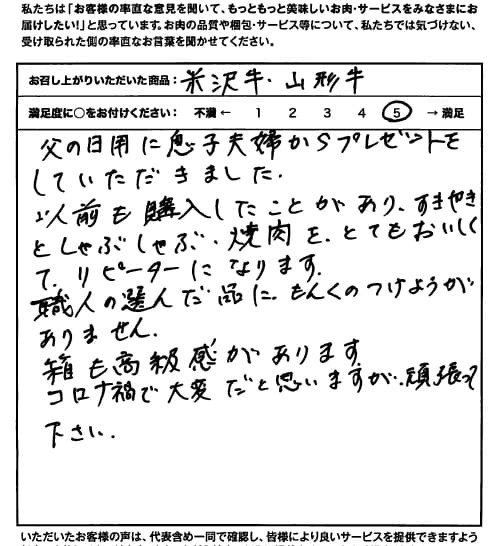 私たちは「お客様の率直な意見を聞いて、もっともっと美味しいお肉・サービスをみなさまにお
届けしたい!」と思っています。お肉の品質や梱包・サービス等について、私たちでは気づけない、
受け取られた側の率直なお言葉を聞かせてください。
お召し上がりいただいた商品：米沢牛・山形牛
満足度に○をお付けください： 不満 ← 1 2 3 4 5 → 満足
父の日用に息子夫婦からプレゼントを
していただきました.
以前も購入したことがあり、すきやき
としゃぶしゃぶ・焼肉を、とてもおいしく
て、リピーターになります.
職人の選んだ品に、もんくのつけようが
ありません.
箱も高級感があります
コロナ禍で大変だと思いますが、頑張って
下さい.
いただいたお客様の声は、代表含め一同で確認し、皆様により良いサービスを提供できますよう